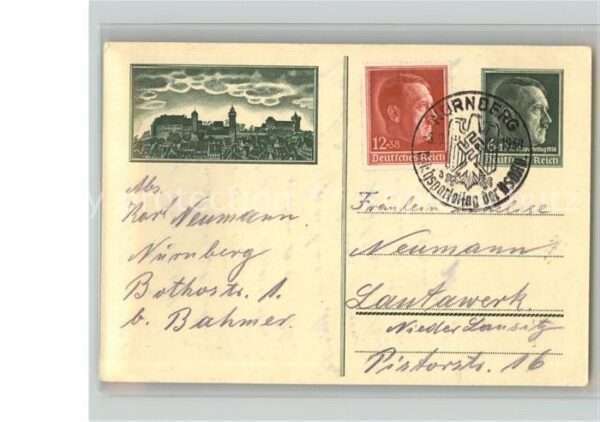 Abs.
Karl Neumann.
Nürnberg
Bothostr. 1.
b. Bahmer.
12+38
Deutsches Reich
Deutsches Reich
NÜRNBERG
Reichsparteitag der NSDAP
Fräulein
Neumann
Lautawerk
Nieder Lausitz
Pistorstr. 16